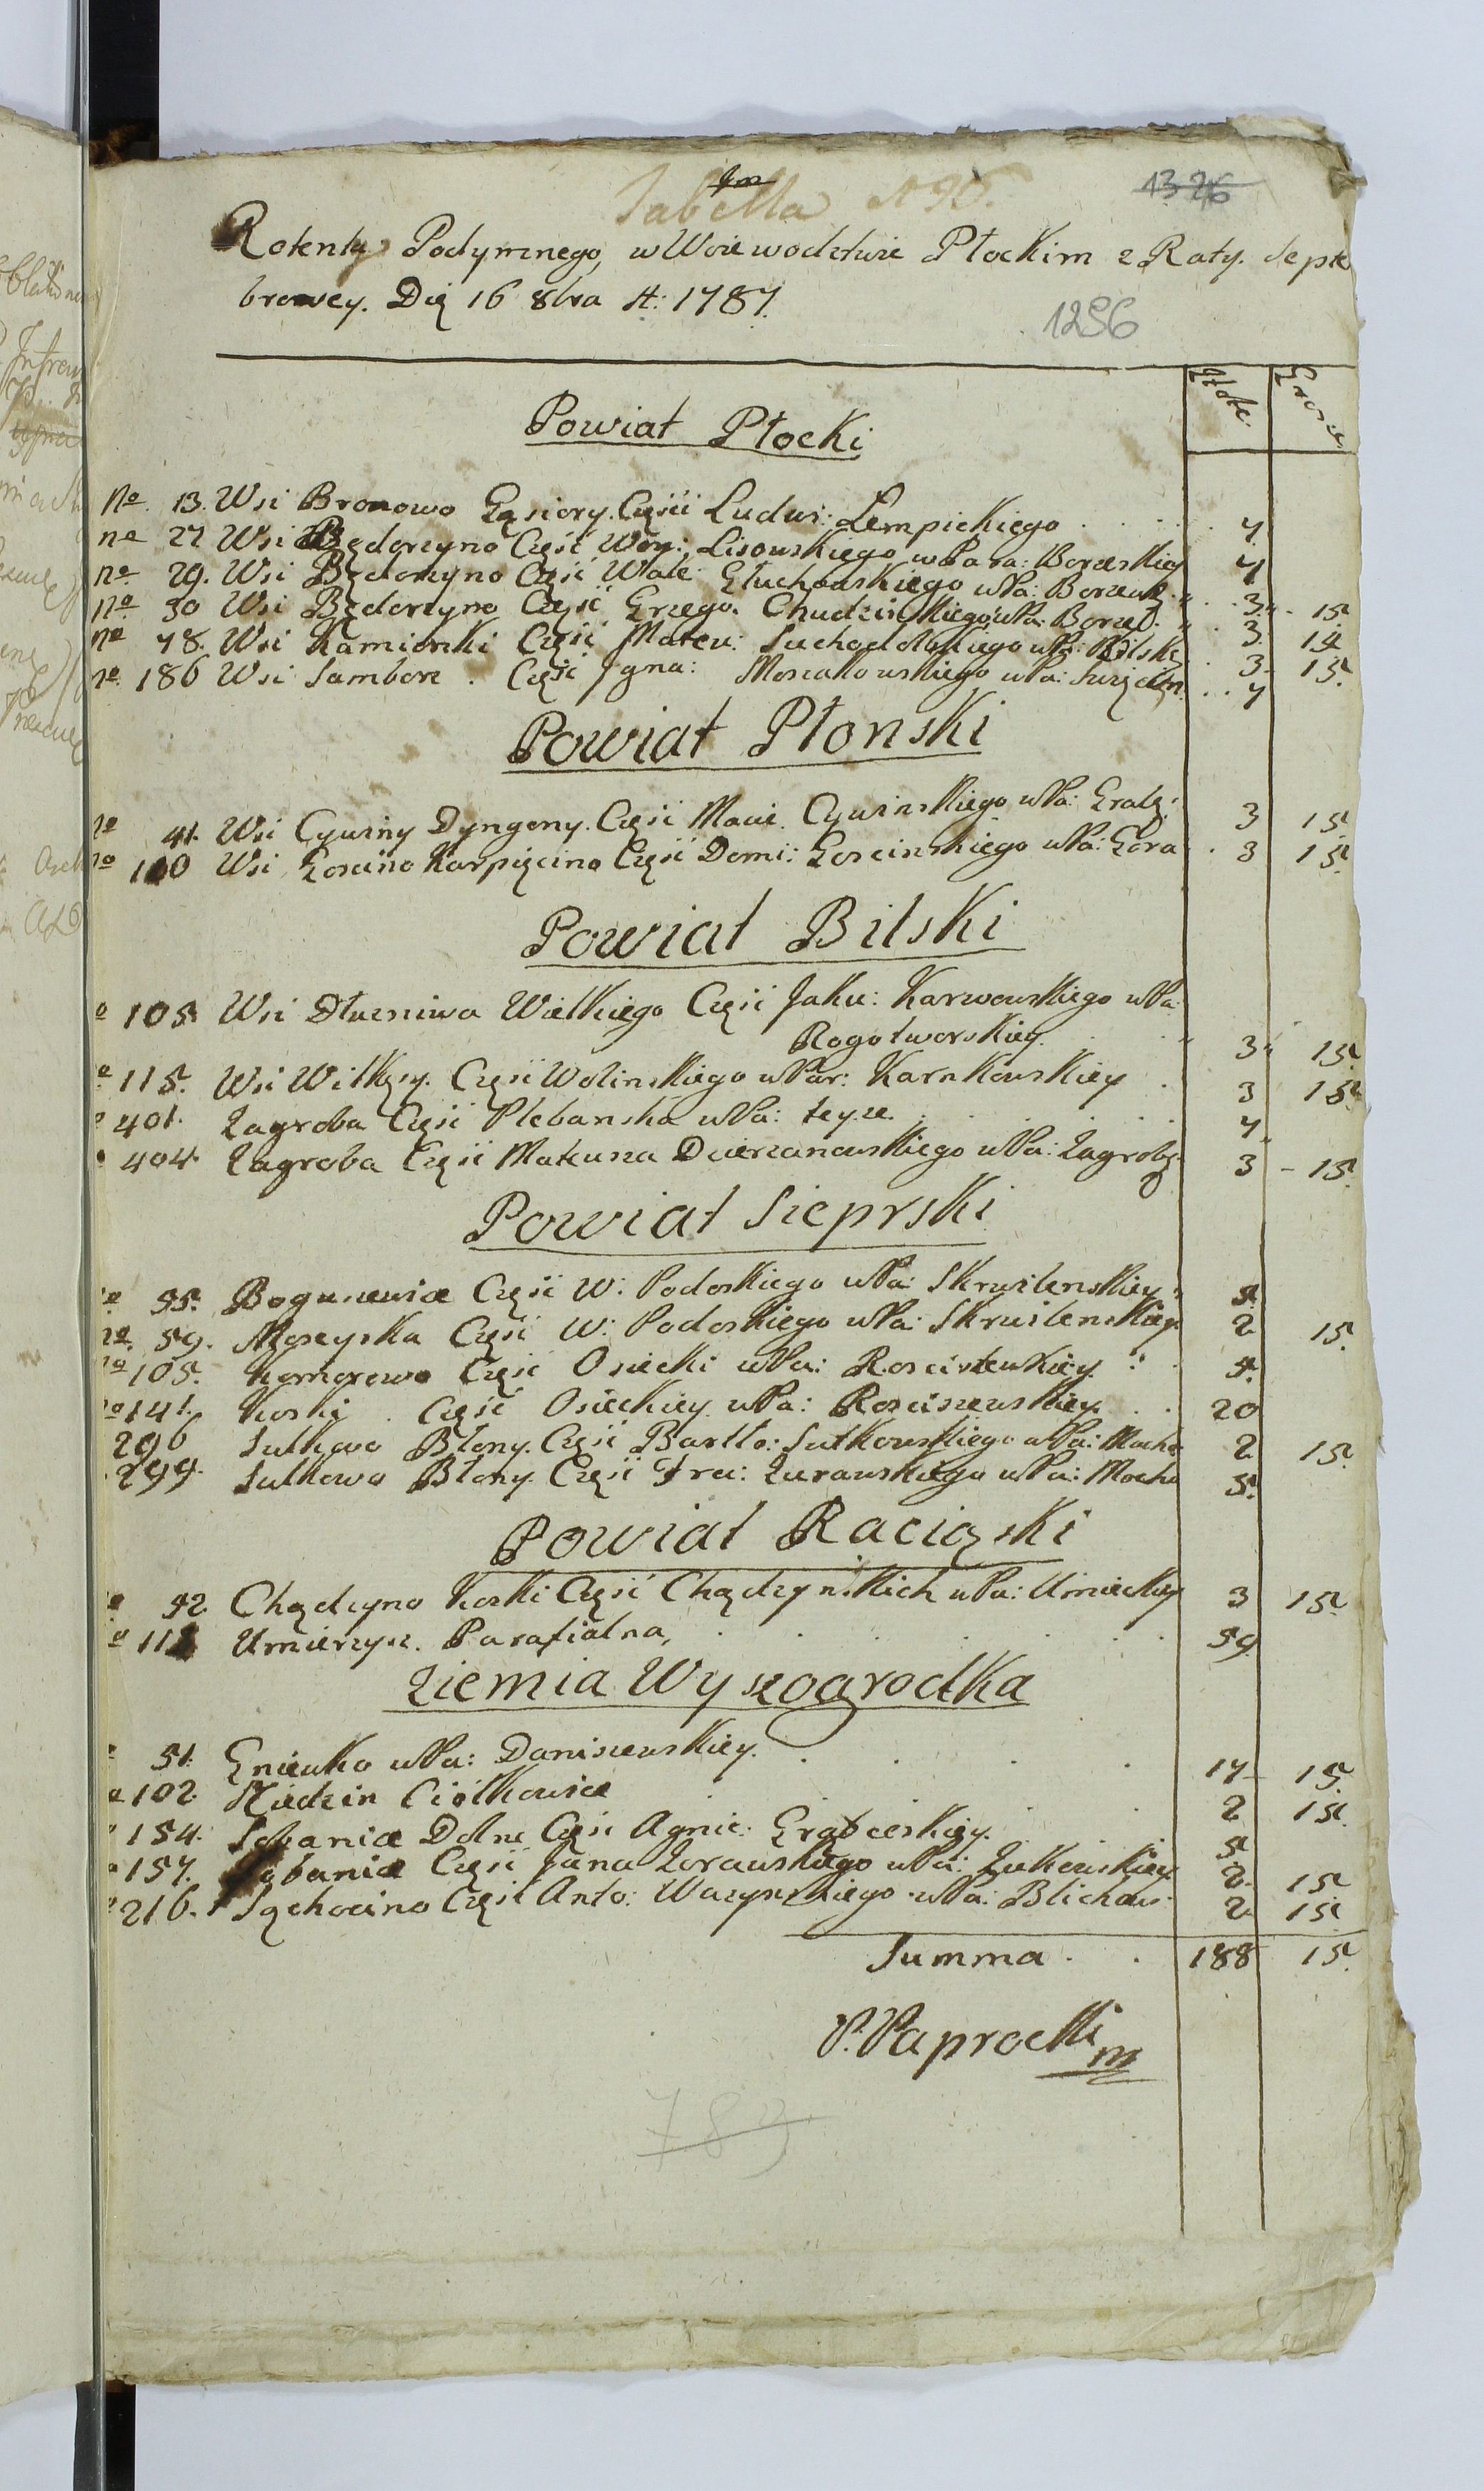 Tabella N 96.
1326
Retenty Podymnego, w Woiewodztwie Płockim z Raty Septe
browey. Dią 16 8bra A: 1787.
1256
Złote. Grosze
Powiat Płocki
No. 13. Wsi Bronowo Gąsiory. Częsci Ludwi: Lempickiego . . . . 7
no 27 Wsi Będorzyno Częsć Woy: Lisowskiego w Para: Borzeskiey 7
no. 29. Wsi Będorzyno Częsć Wale: Głuchowskiego w Pa: Borzesk . . 3 - 15.
no. 30 Wsi Będorzyno Częsć Grzego. Chudzińskiego w Pa: Borzes . . 3 15
no 78. Wsi Kamionki Częsć Mateu: Suchodolskiego w Pa: Bilsk . 3 - 15.
no. 186 Wsi Sambore . Częsć Igna: Moszakowskiego w Pa: . . 7
Powiat Płonski
no 41. Wsi Cywiny Dyngony. Częsć Macie. Cywinskiego w Pa: Gralę. 3 15.
no 110 Wsi Goscino Karpięcino Częsć Domi: Goscinskiego w Pa: Gora . 3 15.
Powiat Bilski
o 105. Wsi Dłuzniwa Wielkiego Częsć Jaku: Karwowskiego w Pa:
Rogotworskiey. . . 3 15.
o 115. Wsi Wilkęsy. Częsć Wolinskiego w Par: Karnkowskiey . 3 15.
401. Zagroba Częsć Plebanska w Pa: teyze. . . . . 7
404. Zagroba Częsć Mateusza Dzierzanowskiego w Pa: Zagrobs. 3 - 15.
Powiat Sieprski
o 55. Boguszewice Częsć W: Podoskiego w Pa: Skrwilenskiey. 5.
no. 59. Mosczyska Częsć W: Podoskiego w Pa: Skrwilenskiey 2 15.
no 105. Komorowo Częsć Osiecki w Pa: Rosciszewskiey . 5.
no 141. Koski . Częsć Osieckiey w Pa: Rosciszewskiey . . 20
296 Sulkowo Błony. Częsć Bartło: Sułkowskiego w Pa: Mocho 2 15.
299. Sulkowo Błony. Częsć Fra: Zurawskiego w Pa: Mocho 5.
Powiat Raciązki
o 92. Chądzyno Koski Częsć Chądzynskich w Pa: Unieckiey 3 15.
o 111 Umierzysz. Parafialna, . . . . 59
Ziemia Wyszogrodka
51. Gniewko w Pa: Daniszewskiey. . . . 17 - 15.
o 102. Niedzin Ciołkowice . . . . 2 15.
154. Sobanice Dolne Częsć Agnie: Grąbceskiey . . 5
o 157. Sobanice Częsć Jana Zorawskiego w Pa: Zukowskiey 2. 15
o 216. Sąchocino Częsć Anto: Waszynskiego w Pa: Blichow. 2. 15.
Summa . . 188 15.
P. Paprocki
783